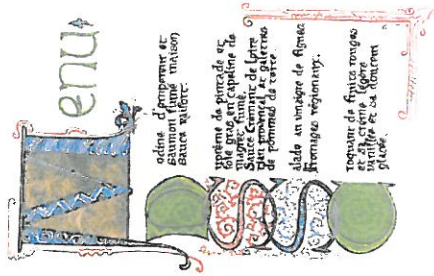 Menu
odine d'empereur et
saumon fumé maison
sauce raifort.
Suprême de pintade et
foie gras en capeline de
magret fumé,
Sauce Crémant de Loire
flan provençal et galettes
de pommes de terre.
Salade au vinaigre de figues
fromages régionaux.
roquant de fruits rouges
et sa crème légère
vanillée et sa douceur
glacée.